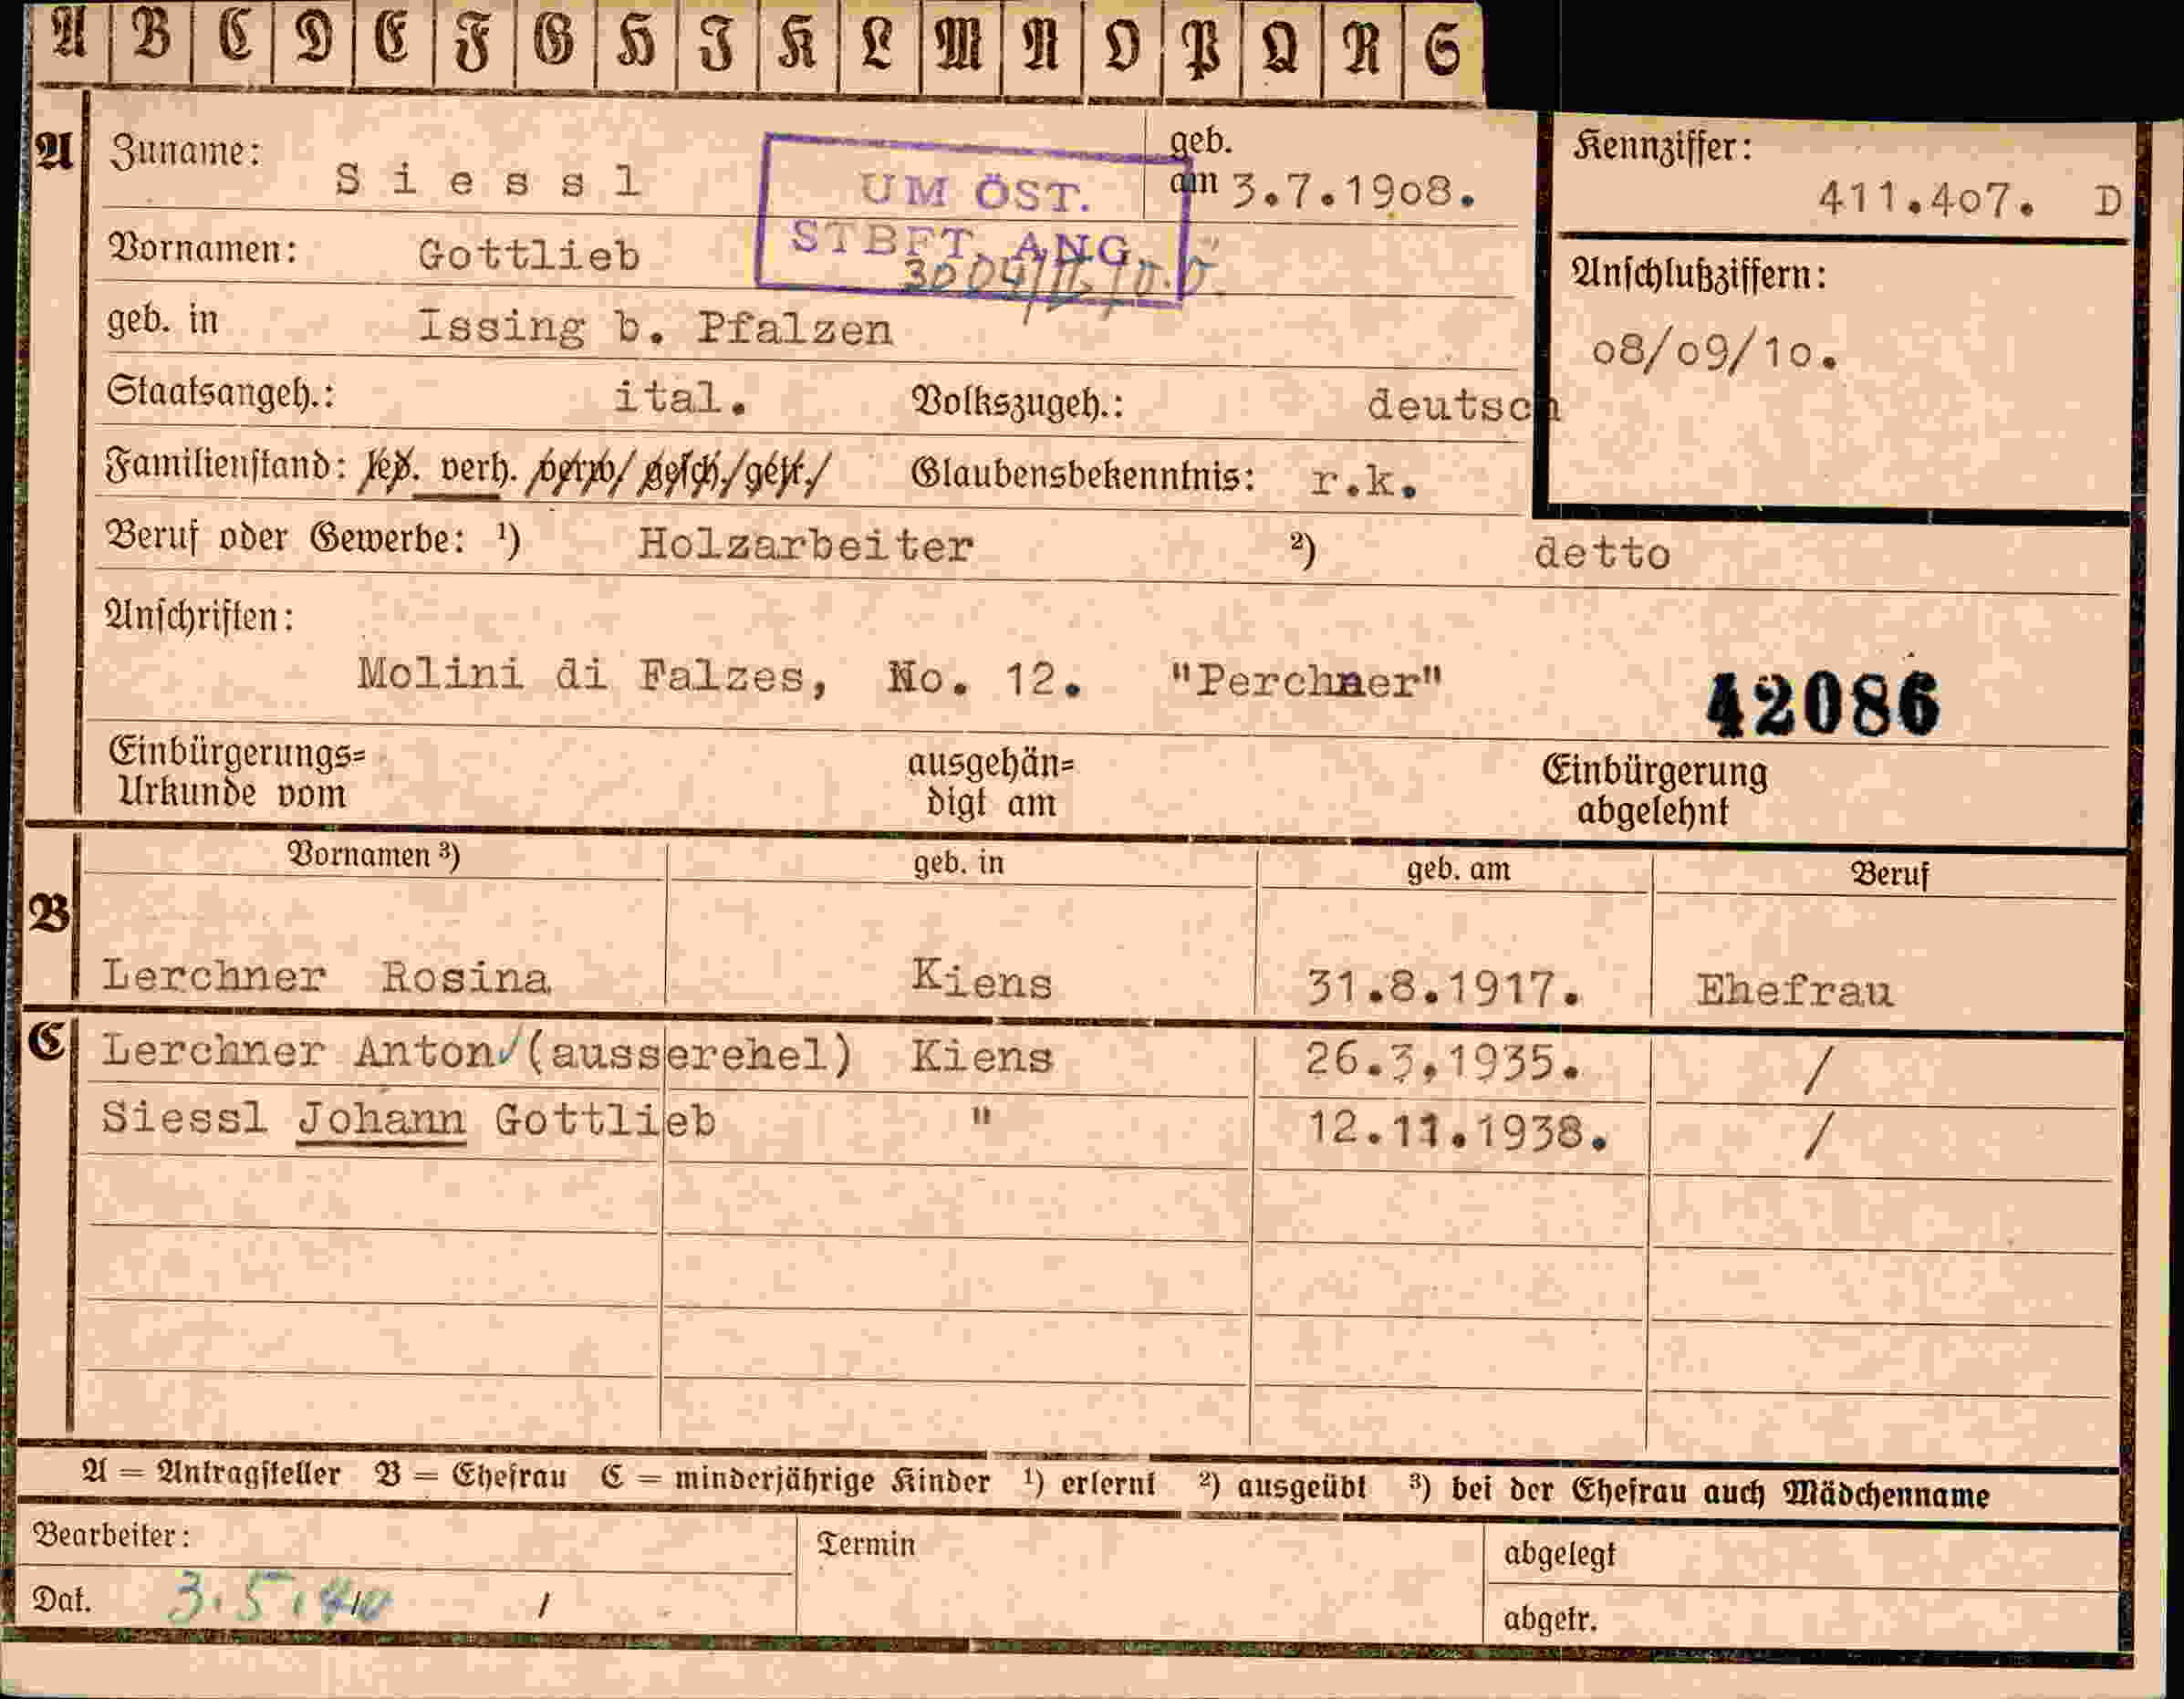 A B C D E F G H I K L M N O P Q R S
A Zuname: Siessl geb. am 3.7.1908. Kennziffer: 411.407. D
UM ÖST. STBFT. ANG.
Vornamen: Gottlieb
Anschlußziffern: 08/09/10.
geb. in Issing b. Pfalzen
Staatsangeh.: ital. Volkszugeh.: deutsch
Familienstand: led. verh. verw/ gesch./getr./ Glaubensbekenntnis: r.k.
Beruf oder Gewerbe: ¹) Holzarbeiter ²) detto
Anschriften:
Molini di Falzes, No. 12. "Perchner" 42086
Einbürgerungs=
Urkunde vom
ausgehän=
digt am
Einbürgerung
abgelehnt
Vornamen ³) geb. in geb. am Beruf
B
Lerchner Rosina Kiens 31.8.1917. Ehefrau
C Lerchner Anton (ausserehel) Kiens 26.3.1935. /
Siessl Johann Gottlieb " 12.11.1938. /
A = Antragsteller B = Ehefrau C = minderjährige Kinder ¹) erlernt ²) ausgeübt ³) bei der Ehefrau auch Mädchenname
Bearbeiter: Termin abgelegt
Dat. 3.5.40 / abgetr.